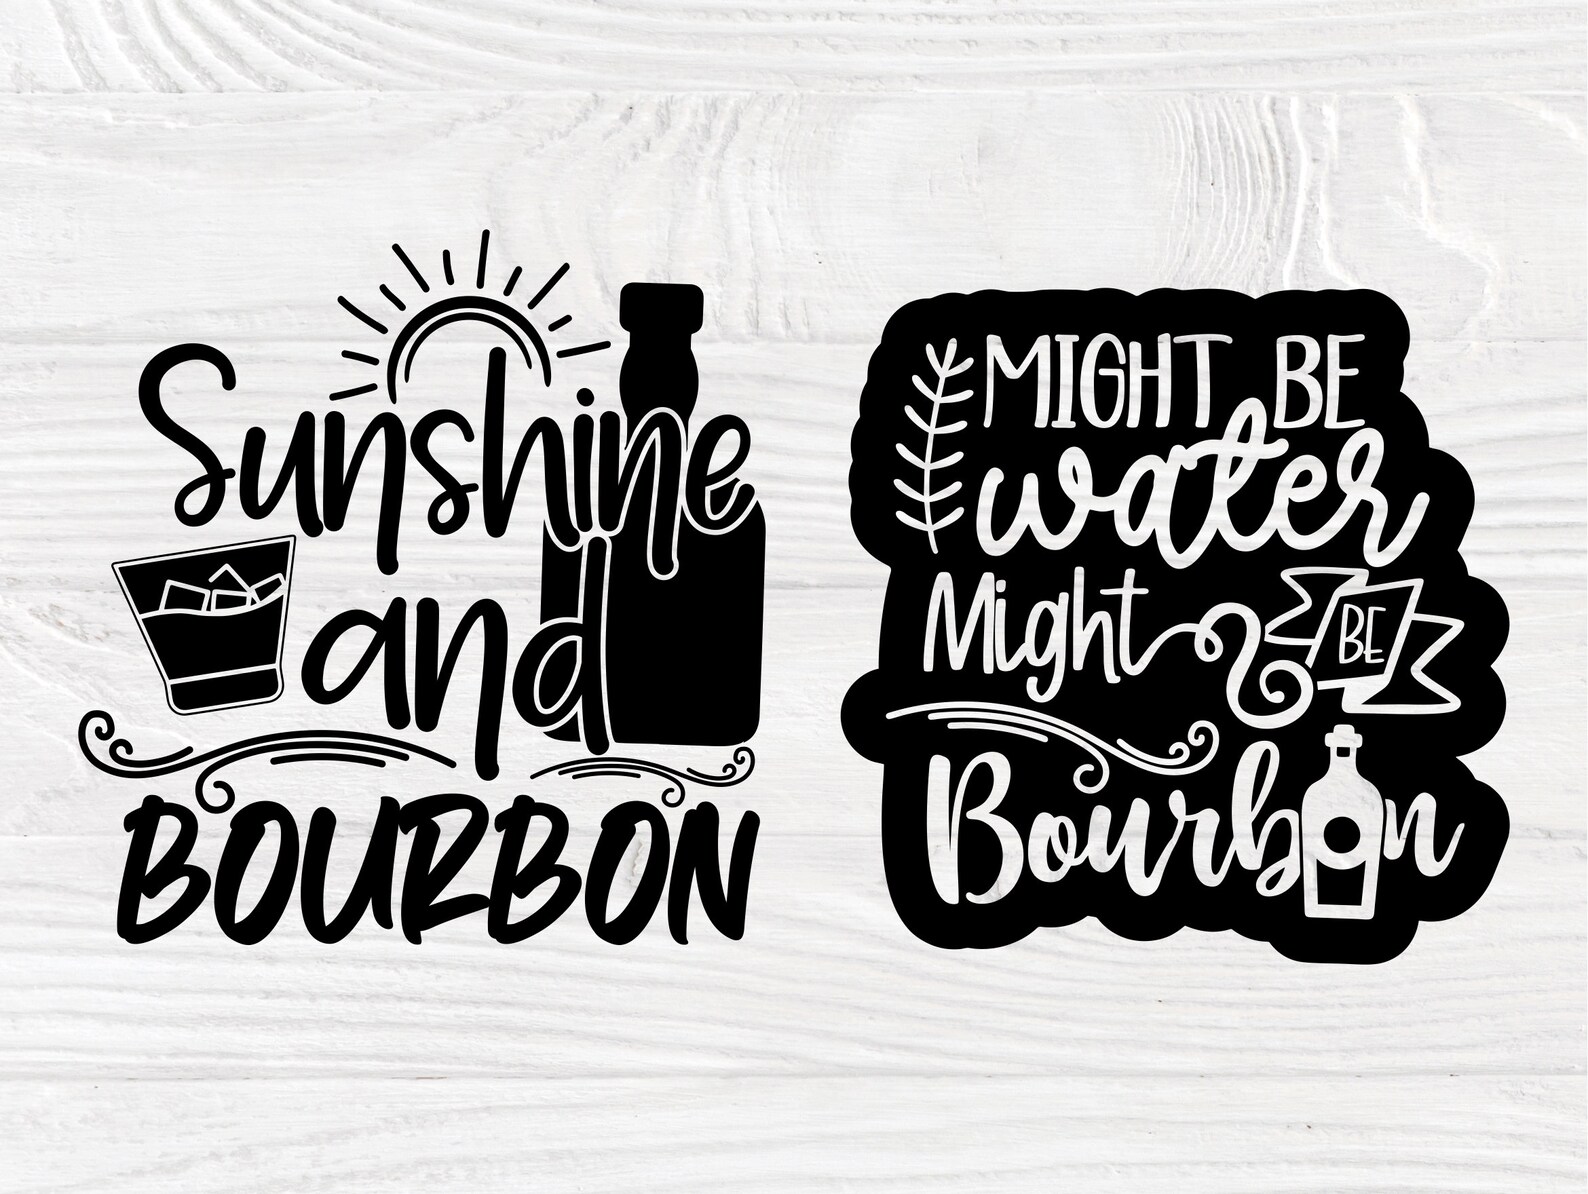 Sunshine
and
BOURBON
MIGHT BE
water
Might BE
Bourbon